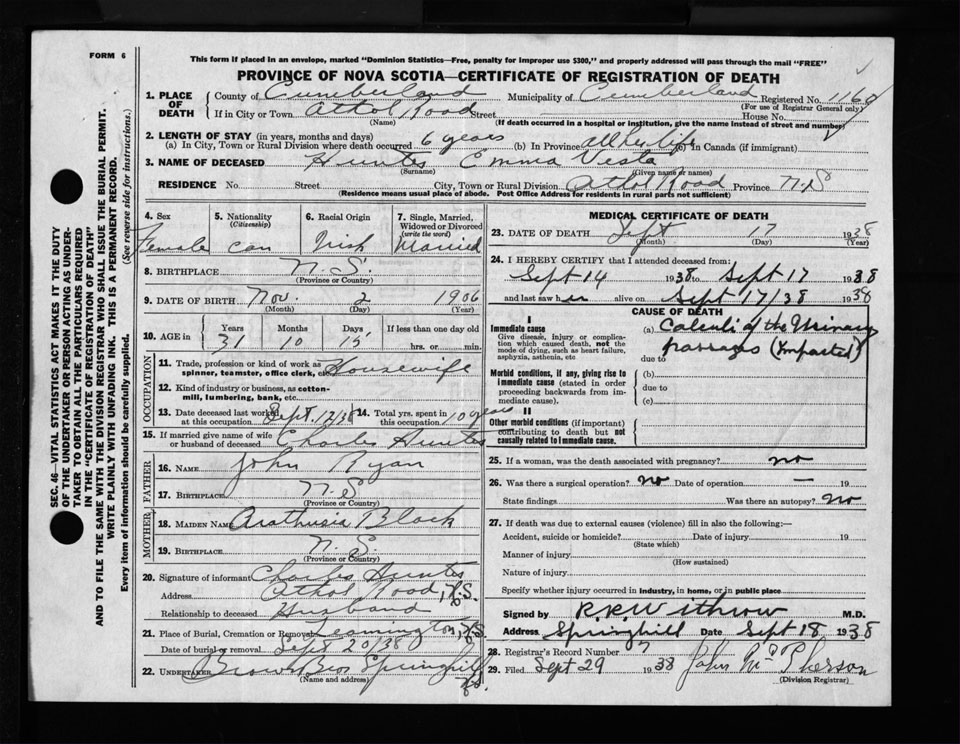 FORM 6
This form if placed in an envelope, marked "Dominion Statistics—Free, penalty for improper use $300," and properly addressed will pass through the mail "FREE"
PROVINCE OF NOVA SCOTIA—CERTIFICATE OF REGISTRATION OF DEATH
1. PLACE OF DEATH County of Cumberland Municipality of Cumberland Registered No.
(For use of Registrar General only)
If in City or Town Athol Road Street House No.
(Name) (If death occurred in a hospital or institution, give the name instead of street and number)
2. LENGTH OF STAY (in years, months and days)
(a) In City, Town or Rural Division where death occurred 6 years (b) In Province all her life (c) in Canada (if immigrant)
3. NAME OF DECEASED Hunter Emma Vesta
(Surname) (Given name or names)
RESIDENCE No. Street City, Town or Rural Division Athol Road Province N.S
(Residence means usual place of abode. Post Office Address for residents in rural parts not sufficient)
4. Sex 5. Nationality (Citizenship) 6. Racial Origin 7. Single, Married, Widowed or Divorced (write the word)
Female Can Irish Married
8. BIRTHPLACE N.S.
(Province or Country)
9. DATE OF BIRTH Nov. 2 1906
(Month) (Day) (Year)
10. AGE in Years Months Days If less than one day old
31 10 15 hrs. or min.
OCCUPATION
11. Trade, profession or kind of work as spinner, teamster, office clerk, etc. Housewife
12. Kind of industry or business, as cotton-mill, lumbering, bank, etc.
13. Date deceased last worked at this occupation Sept. 17/38 14. Total yrs. spent in this occupation 10 years
15. If married give name of wife or husband of deceased Charles Hunter
FATHER
16. NAME John Ryan
17. BIRTHPLACE N.S
(Province or Country)
MOTHER
18. MAIDEN NAME Arathusia Black
19. BIRTHPLACE N.S.
(Province or Country)
20. Signature of informant Charles Hunter
Address Athol Road, N.S.
Relationship to deceased Husband
21. Place of Burial, Cremation or Removal Leamington, N.S.
Date of burial or removal Sept 20/38
22. UNDERTAKER Brown Bros Springhill N.S.
(Name and address)
MEDICAL CERTIFICATE OF DEATH
23. DATE OF DEATH Sept 17 1938
(Month) (Day) (Year)
24. I HEREBY CERTIFY that I attended deceased from:
Sept 14 1938 to Sept 17 1938
and last saw her alive on Sept 17/38 1938
CAUSE OF DEATH
I
Immediate cause
Give disease, injury or complication which caused death, not the mode of dying, such as heart failure, asphyxia, asthenia, etc
(a) Calculi of the Urinary
passages (Impacted)
due to
Morbid conditions, if any, giving rise to immediate cause (stated in order proceeding backwards from immediate cause).
(b)
due to
(c)
II
Other morbid conditions (if important) contributing to death but not causally related to immediate cause.
25. If a woman, was the death associated with pregnancy? no
26. Was there a surgical operation? no Date of operation — 19
State findings Was there an autopsy? no
27. If death was due to external causes (violence) fill in also the following:—
Accident, suicide or homicide? Date of injury 19
(State which)
Manner of injury
(How sustained)
Nature of injury
Specify whether injury occurred in industry, in home, or in public place
Signed by R.R. Withrow M.D.
Address Springhill Date Sept 18, 1938
28. Registrar's Record Number 7
29. Filed Sept 29 1938 John McPherson
(Division Registrar)
SEC. 46—VITAL STATISTICS ACT MAKES IT THE DUTY
OF THE UNDERTAKER OR PERSON ACTING AS UNDER-
TAKER TO OBTAIN ALL THE PARTICULARS REQUIRED
IN THE "CERTIFICATE OF REGISTRATION OF DEATH"
AND TO FILE THE SAME WITH THE DIVISION REGISTRAR WHO SHALL ISSUE THE BURIAL PERMIT.
WRITE PLAINLY WITH UNFADING INK. THIS IS A PERMANENT RECORD.
Every item of information should be carefully supplied. (See reverse side for instructions.)